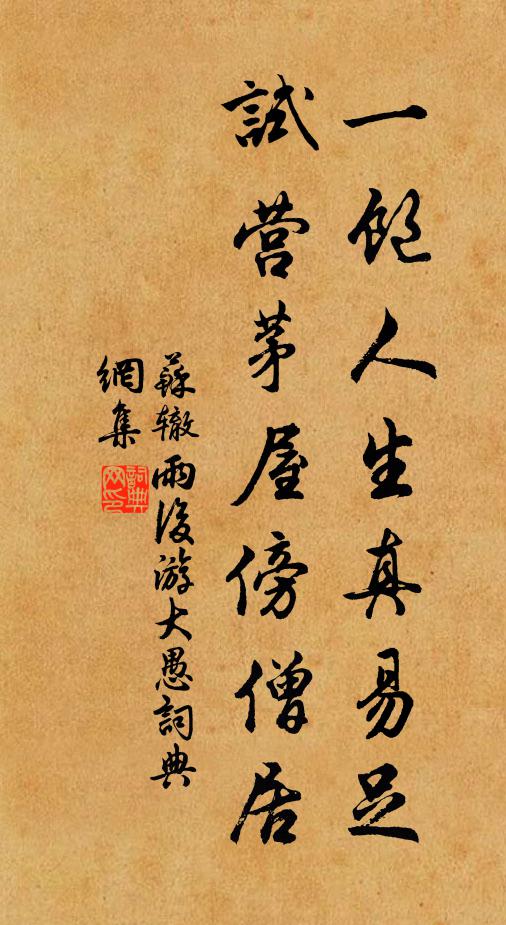 一飽人生真易足
試營茅屋傍僧居
蘇轍雨後游大愚詞典
網集
詞典
網印